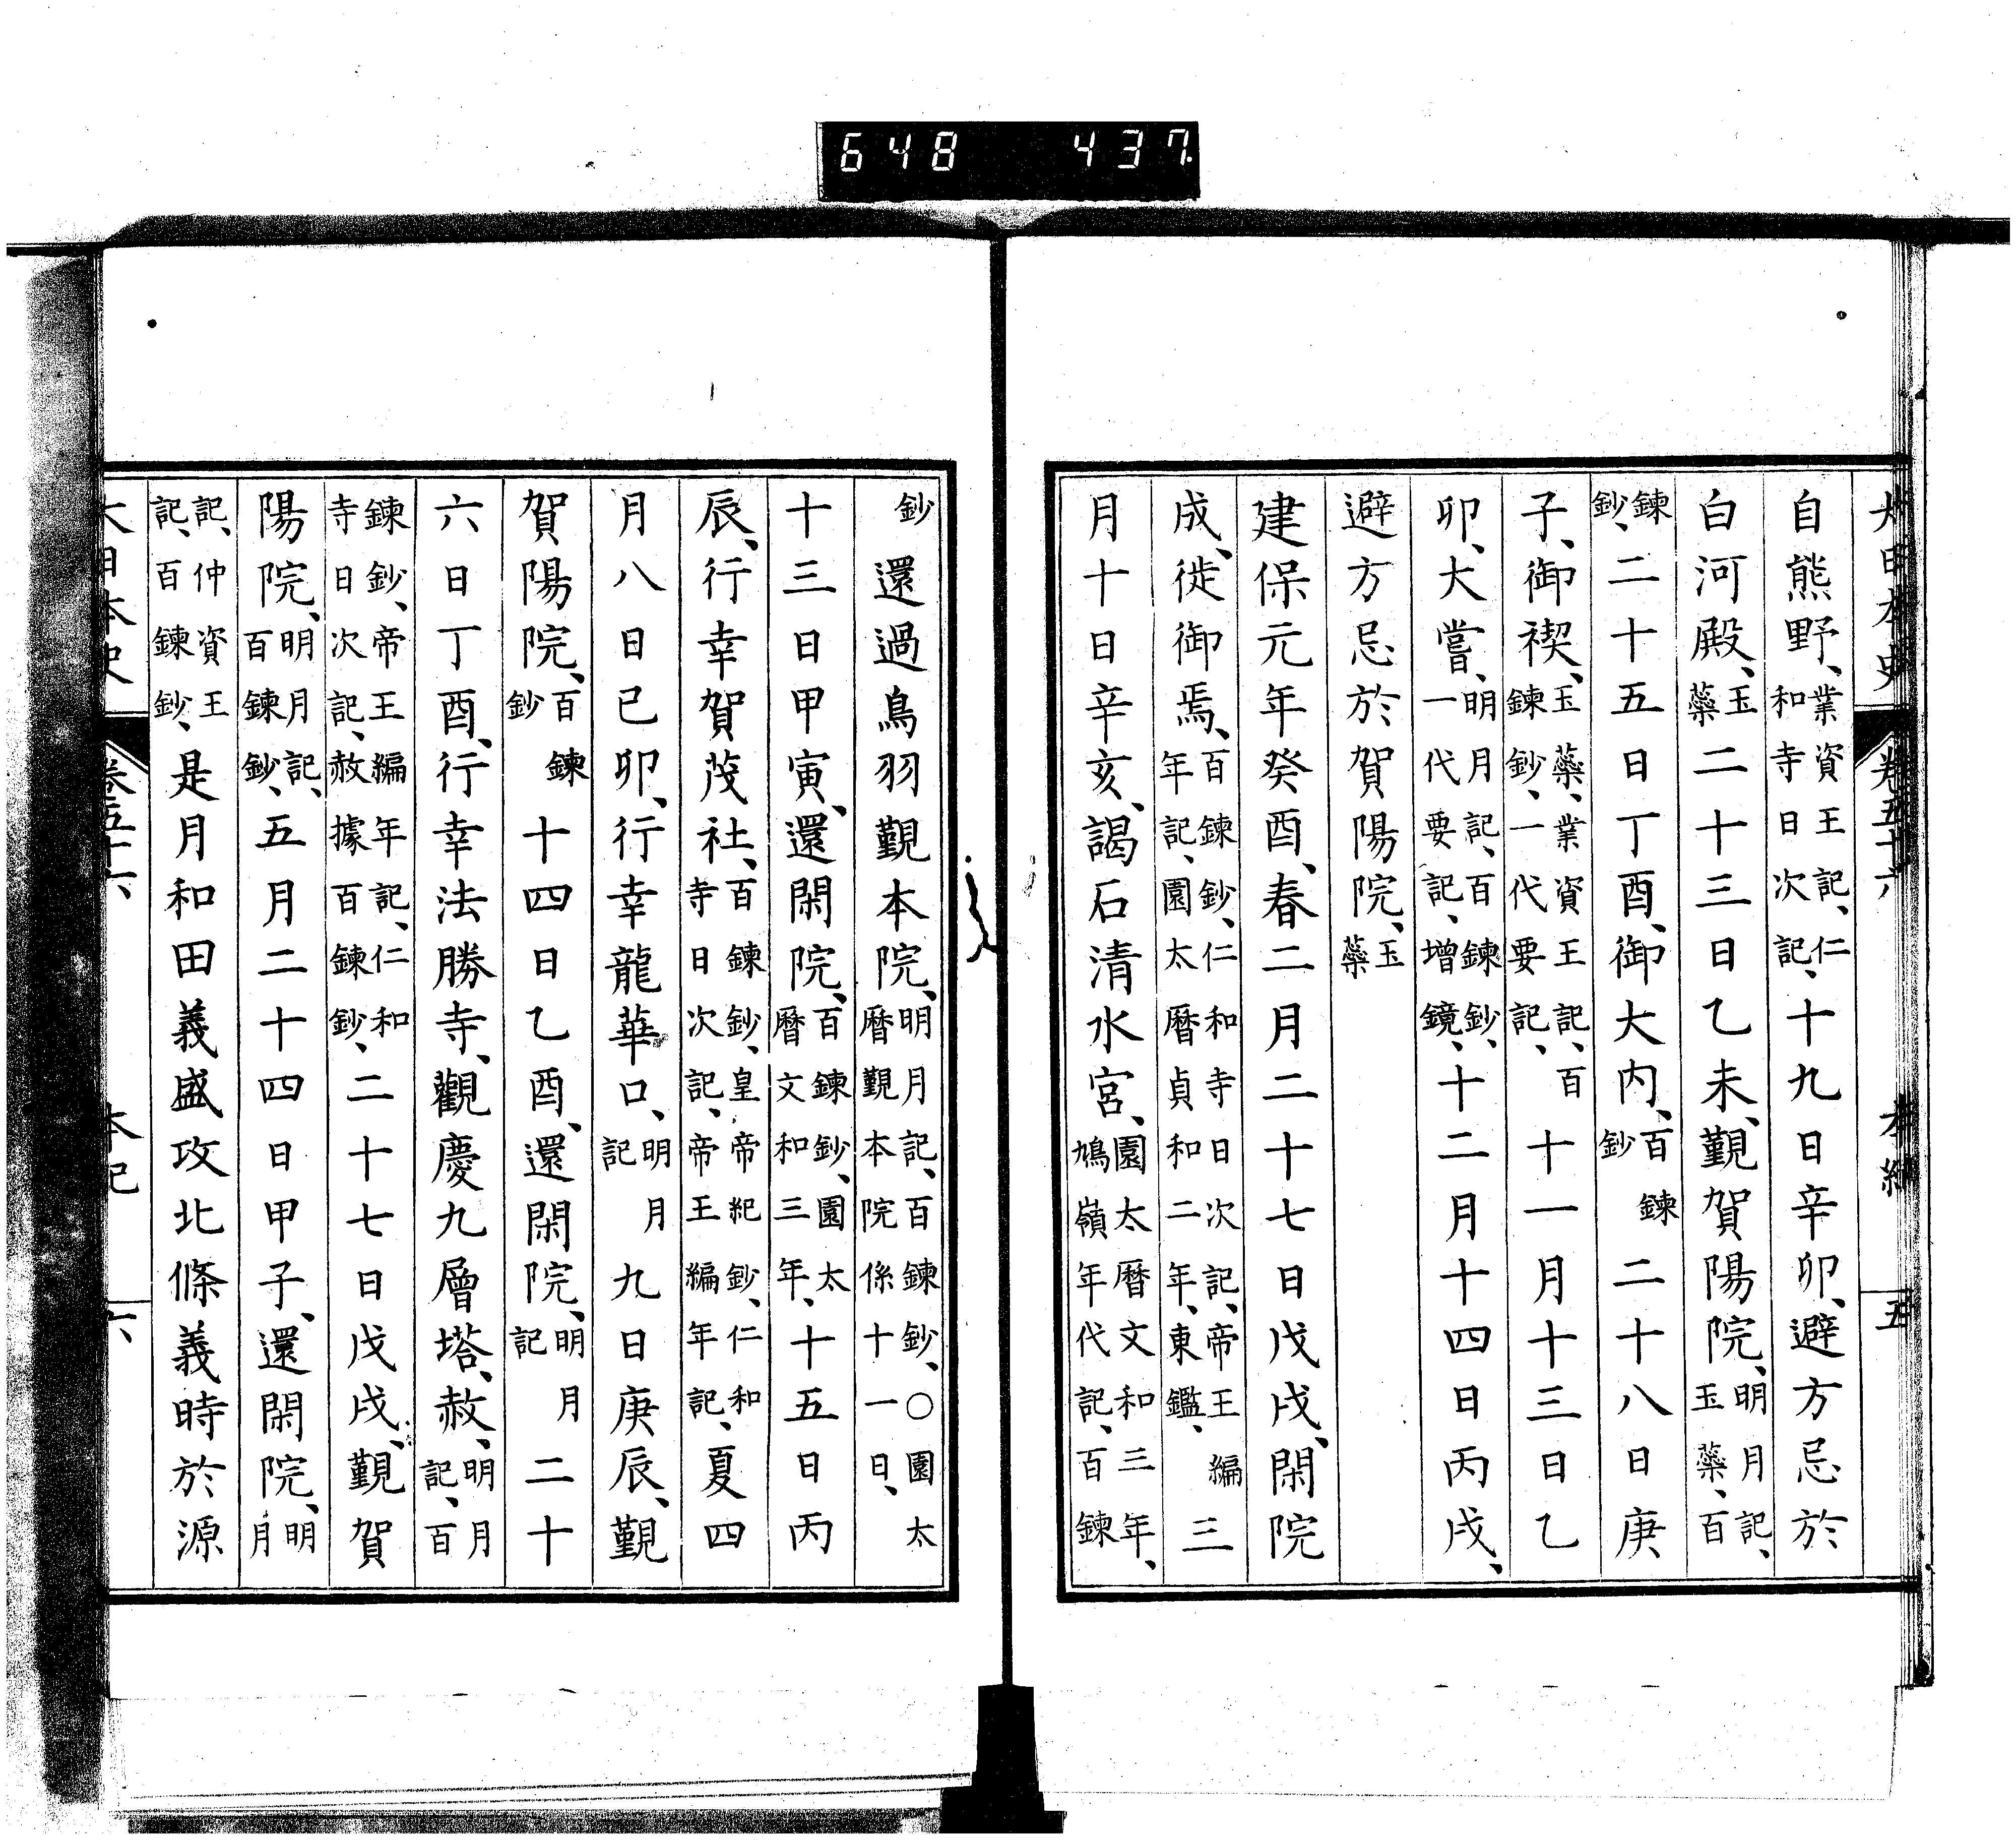 648 437.
大日本史 卷五十六 本紀 五
自熊野、業資王記、仁和寺日次記、十九日辛卯、避方忌於
白河殿、玉蘂二十三日乙未、覲賀陽院、明月記、玉蘂、百
鍊鈔、二十五日丁酉、御大内、百鍊鈔二十八日庚
子、御禊、玉蘂、業資王記、百鍊鈔、一代要記、十一月十三日乙
卯、大嘗、明月記、百鍊鈔、一代要記、增鏡、十二月十四日丙戌、
避方忌於賀陽院、玉蘂
建保元年癸酉、春二月二十七日戊戌、閑院
成、徙御焉、百鍊鈔、仁和寺日次記、帝王編年記、園太曆貞和二年、東鑑、三
月十日辛亥、謁石清水宮、園太曆文和三年、鳩嶺年代記、百鍊
鈔還過鳥羽覲本院、明月記、百鍊鈔、○園太曆覲本院係十一日、
十三日甲寅、還閑院、百鍊鈔、園太曆文和三年、十五日丙
辰、行幸賀茂社、百鍊鈔、皇帝紀鈔、仁和寺日次記、帝王編年記、夏四
月八日己卯、行幸龍華口、明月記九日庚辰、覲
賀陽院、百鍊鈔十四日乙酉、還閑院、明月記二十
六日丁酉、行幸法勝寺、觀慶九層塔、赦、明月記、百
鍊鈔、帝王編年記、仁和寺日次記、赦據百鍊鈔、二十七日戊戌、覲賀
陽院、明月記、百鍊鈔、五月二十四日甲子、還閑院、明月
記、仲資王記、百鍊鈔、是月和田義盛攻北條義時於源
大日本史 卷五十六 本紀 六